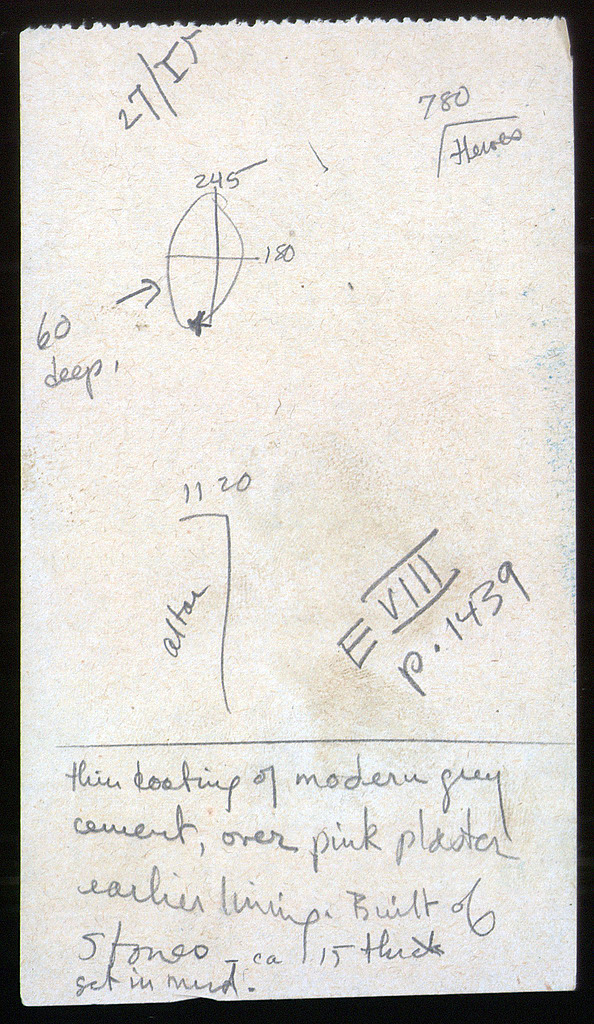 27/IS
780
Heroes
245
180
60
deep.
1120
altar
E VIII
p. 1439
thin coating of modern grey
cement, over pink plaster
earlier lining. Built of
Stones - ca 15 thick
set in mud.